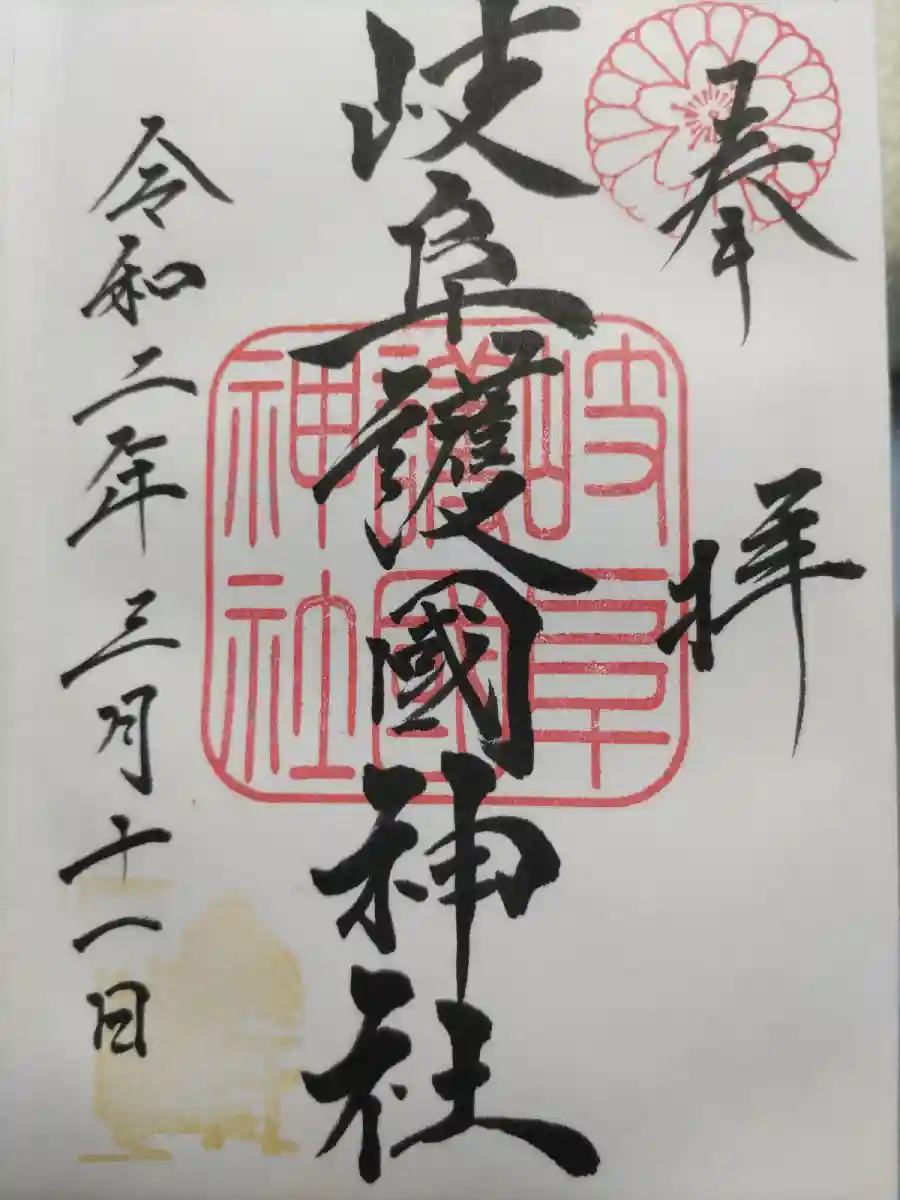 奉拝
岐阜護國神社
岐阜護國神社
令和二年三月十一日